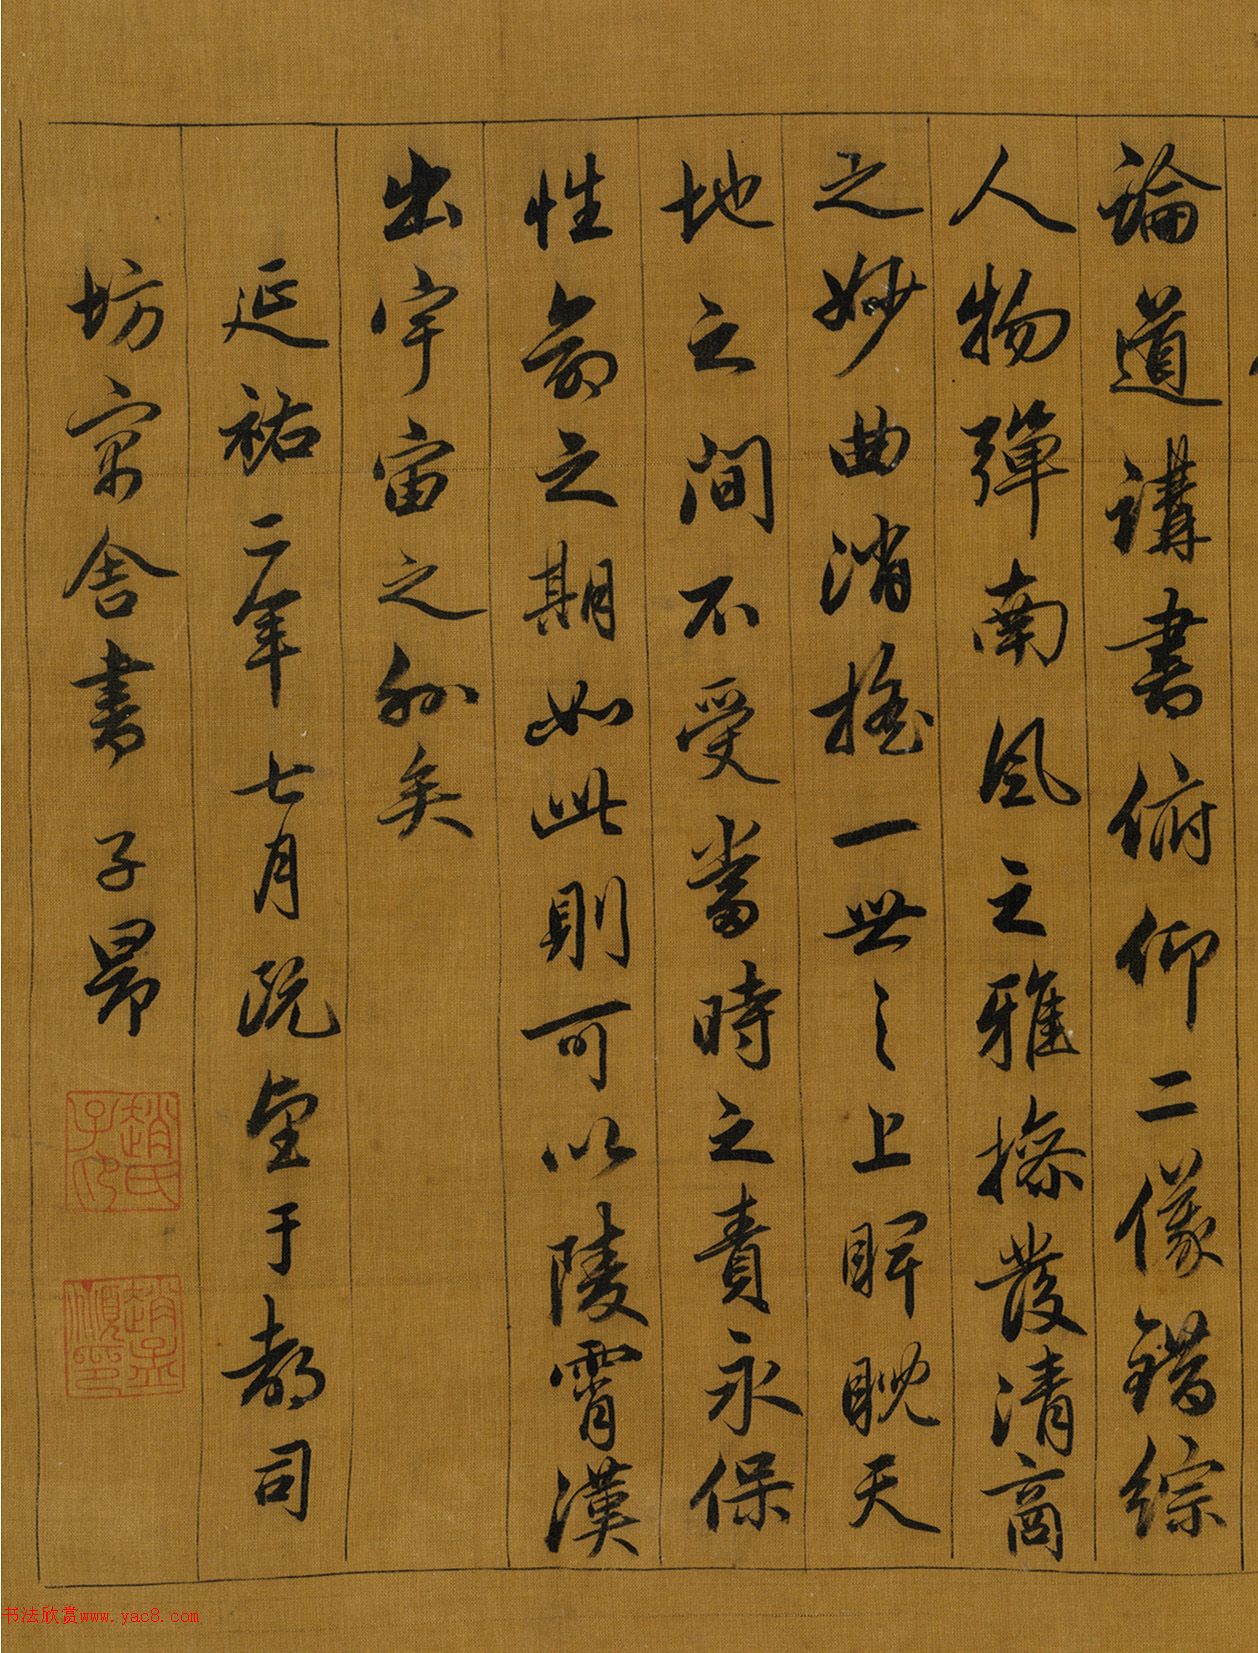 論道講書俯仰二儀錯綜
人物彈南風之雅操發清商
之妙曲消搖一世之上睥睨天
地之間不受當時之責永保
性命之期如此則可以陵霄漢
出宇宙之外矣
延祐二年七月既望于都司
坊寓舍書 子昂
趙氏子昂
趙孟頫印
书法欣赏www.yac8.com